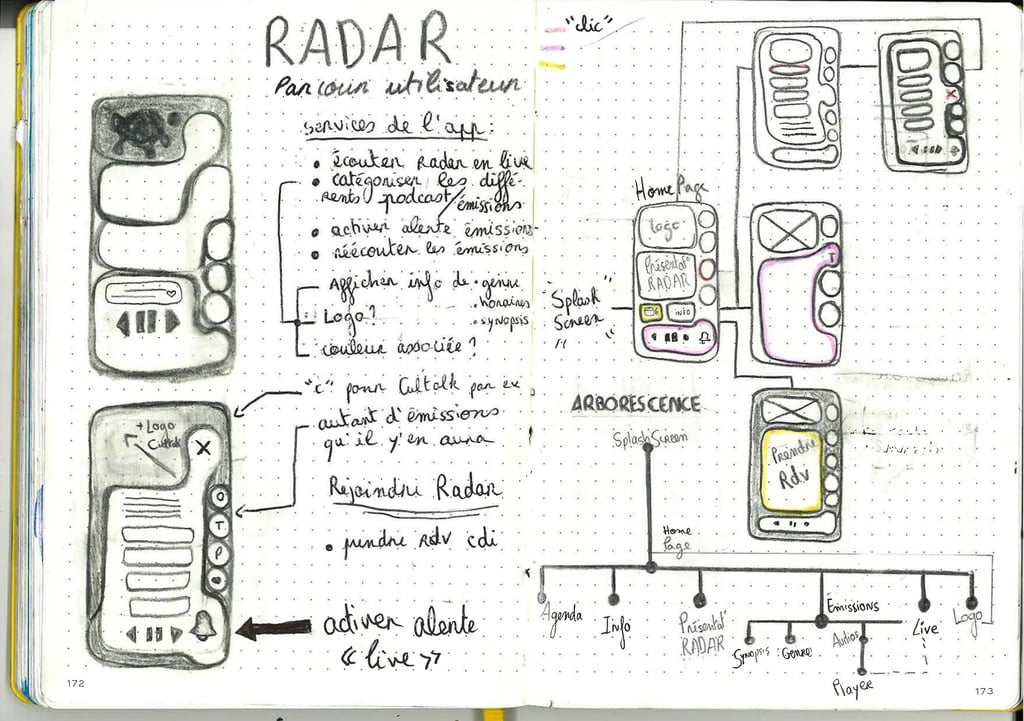 RADAR
Parcour utilisateur
Services de l'app:
• écouter Radar en live
• catégoriser les diffé-
rents podcast/émissions
• activer alerte émissions
• réécouter les émissions
Afficher info de • genre
• horaires
• synopsis
Logo?
couleur associée?
"C" pour Cultalk par ex
autant d'émissions
qu'il y'en aura
Rejoindre Radar
• prendre Rdv cdi
activer alerte
«live»
+ Logo
Cultalk
X
O
T
P
172
"clic"
X
Home Page
Logo
Présentat°
RADAR
INFO
"Splash
Screen"
T
Prendre
Rdv
ARBORESCENCE
Splash Screen
Home
Page
Agenda
Info
Présentat°
RADAR
Émissions
Live
Logo
Synopsis
Genre
Audios
Player
173